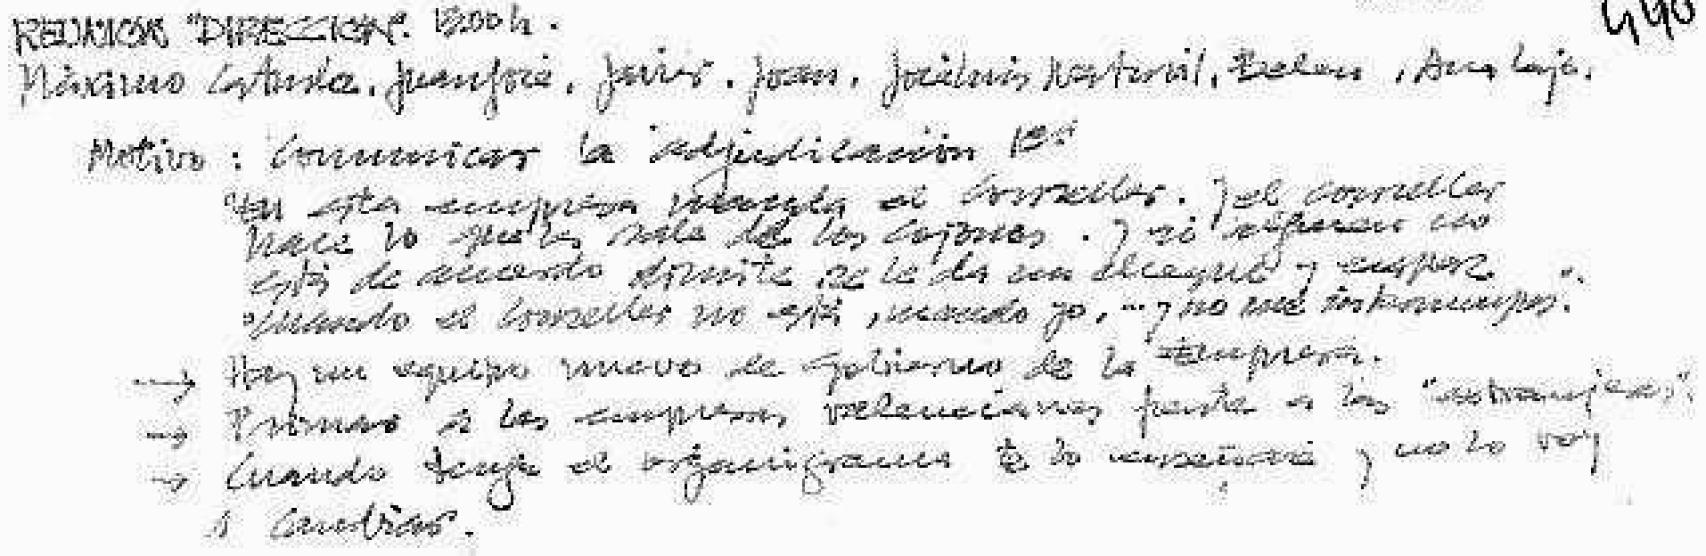 REUNION "DIRECCION". 1300h.
440
Máximo Caturla, Juanjosé, Javier, Joan, Joséluis, Belen, Ana
Motivo: Comunicar la adjudicación
"En esta empresa manda el Conseller. Y el conseller
hace lo que le sale de los cojones. Y si alguien no
está de acuerdo dimite se le da un cheque y
"Cuando el Conseller no está, mando yo, ... y no me interrumpas".
→ Hay un equipo nuevo de gobierno de la empresa.
→ Primar a las empresas valencianas frente a las "extranjeras".
→ Cuando tenga el organigrama te lo enseñaré y no lo voy
a cambiar.